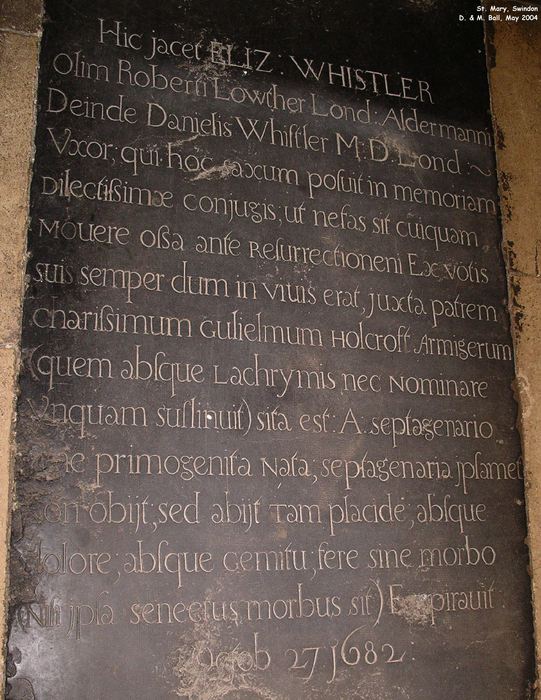 St. Mary, Swindon
D. & M. Ball, May 2004
Hic jacet ELIZ: WHISTLER
Olim Roberti Lowther Lond: Aldermanni
Deinde Danielis Whiſtler M:D: Lond ~
Vxor; qui hoc saxum poſuit in memoriam
Dilectiſsimæ conjugis; ut nefas sit cuiquam
Mouere oſsa ante Reſurrectionem Ex votis
suis semper dum in viuis erat, juxta patrem
chariſsimum Gulielmum Holcroft Armigerum
(quem abſque Lachrymis nec Nominare
Vnquam suſtinuit) sita est: A septagenario
primogenita Nata; septagenaria jpſamet
non obijt; sed abijt Tam placide, abſque
dolore; abſque Gemitu; fere sine morbo
(Niſi jpſa senectus morbus sit) Expirauit
octob 27 1682: